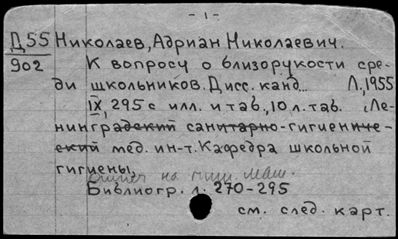 - 1 -
Д55 Николаев, Адриан Николаевич.
902 К вопросу о близорукости сре-
ди школьников. Дисс. канд... Л., 1955
IX, 295 с илл. и таб., 10 л. таб. (Ле-
нинградский санитарно-гигиениче-
ский мед. ин-т. Кафедра школьной
гигиены,
на пиш. маш.
Библиогр. л. 270-295
см. след. карт.